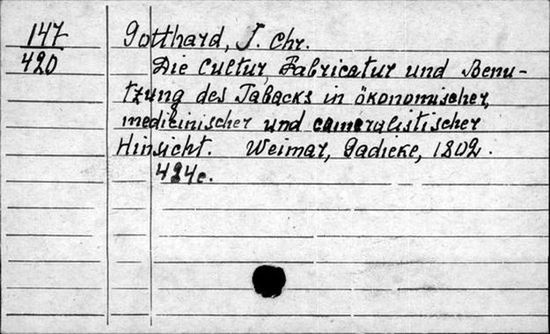 147 Gotthard, J. Chr.
420 Die Cultur, Fabricatur und Benu-
tzung des Tabacks in ökonomischer,
medicinischer und cameralistischer
Hinsicht. Weimar, Gadicke, 1802.
424c.